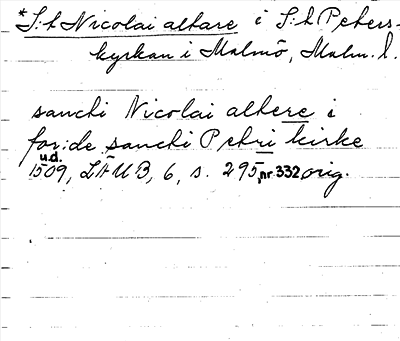 *S:t Nicolai altare i S:t Peters-
kyrkan i Malmö, Malm. l.
sancti Nicolai altere i
for:de sancti Petri kirke
u.d.
1509, LÄUB, 6, s. 295, nr. 332 orig.